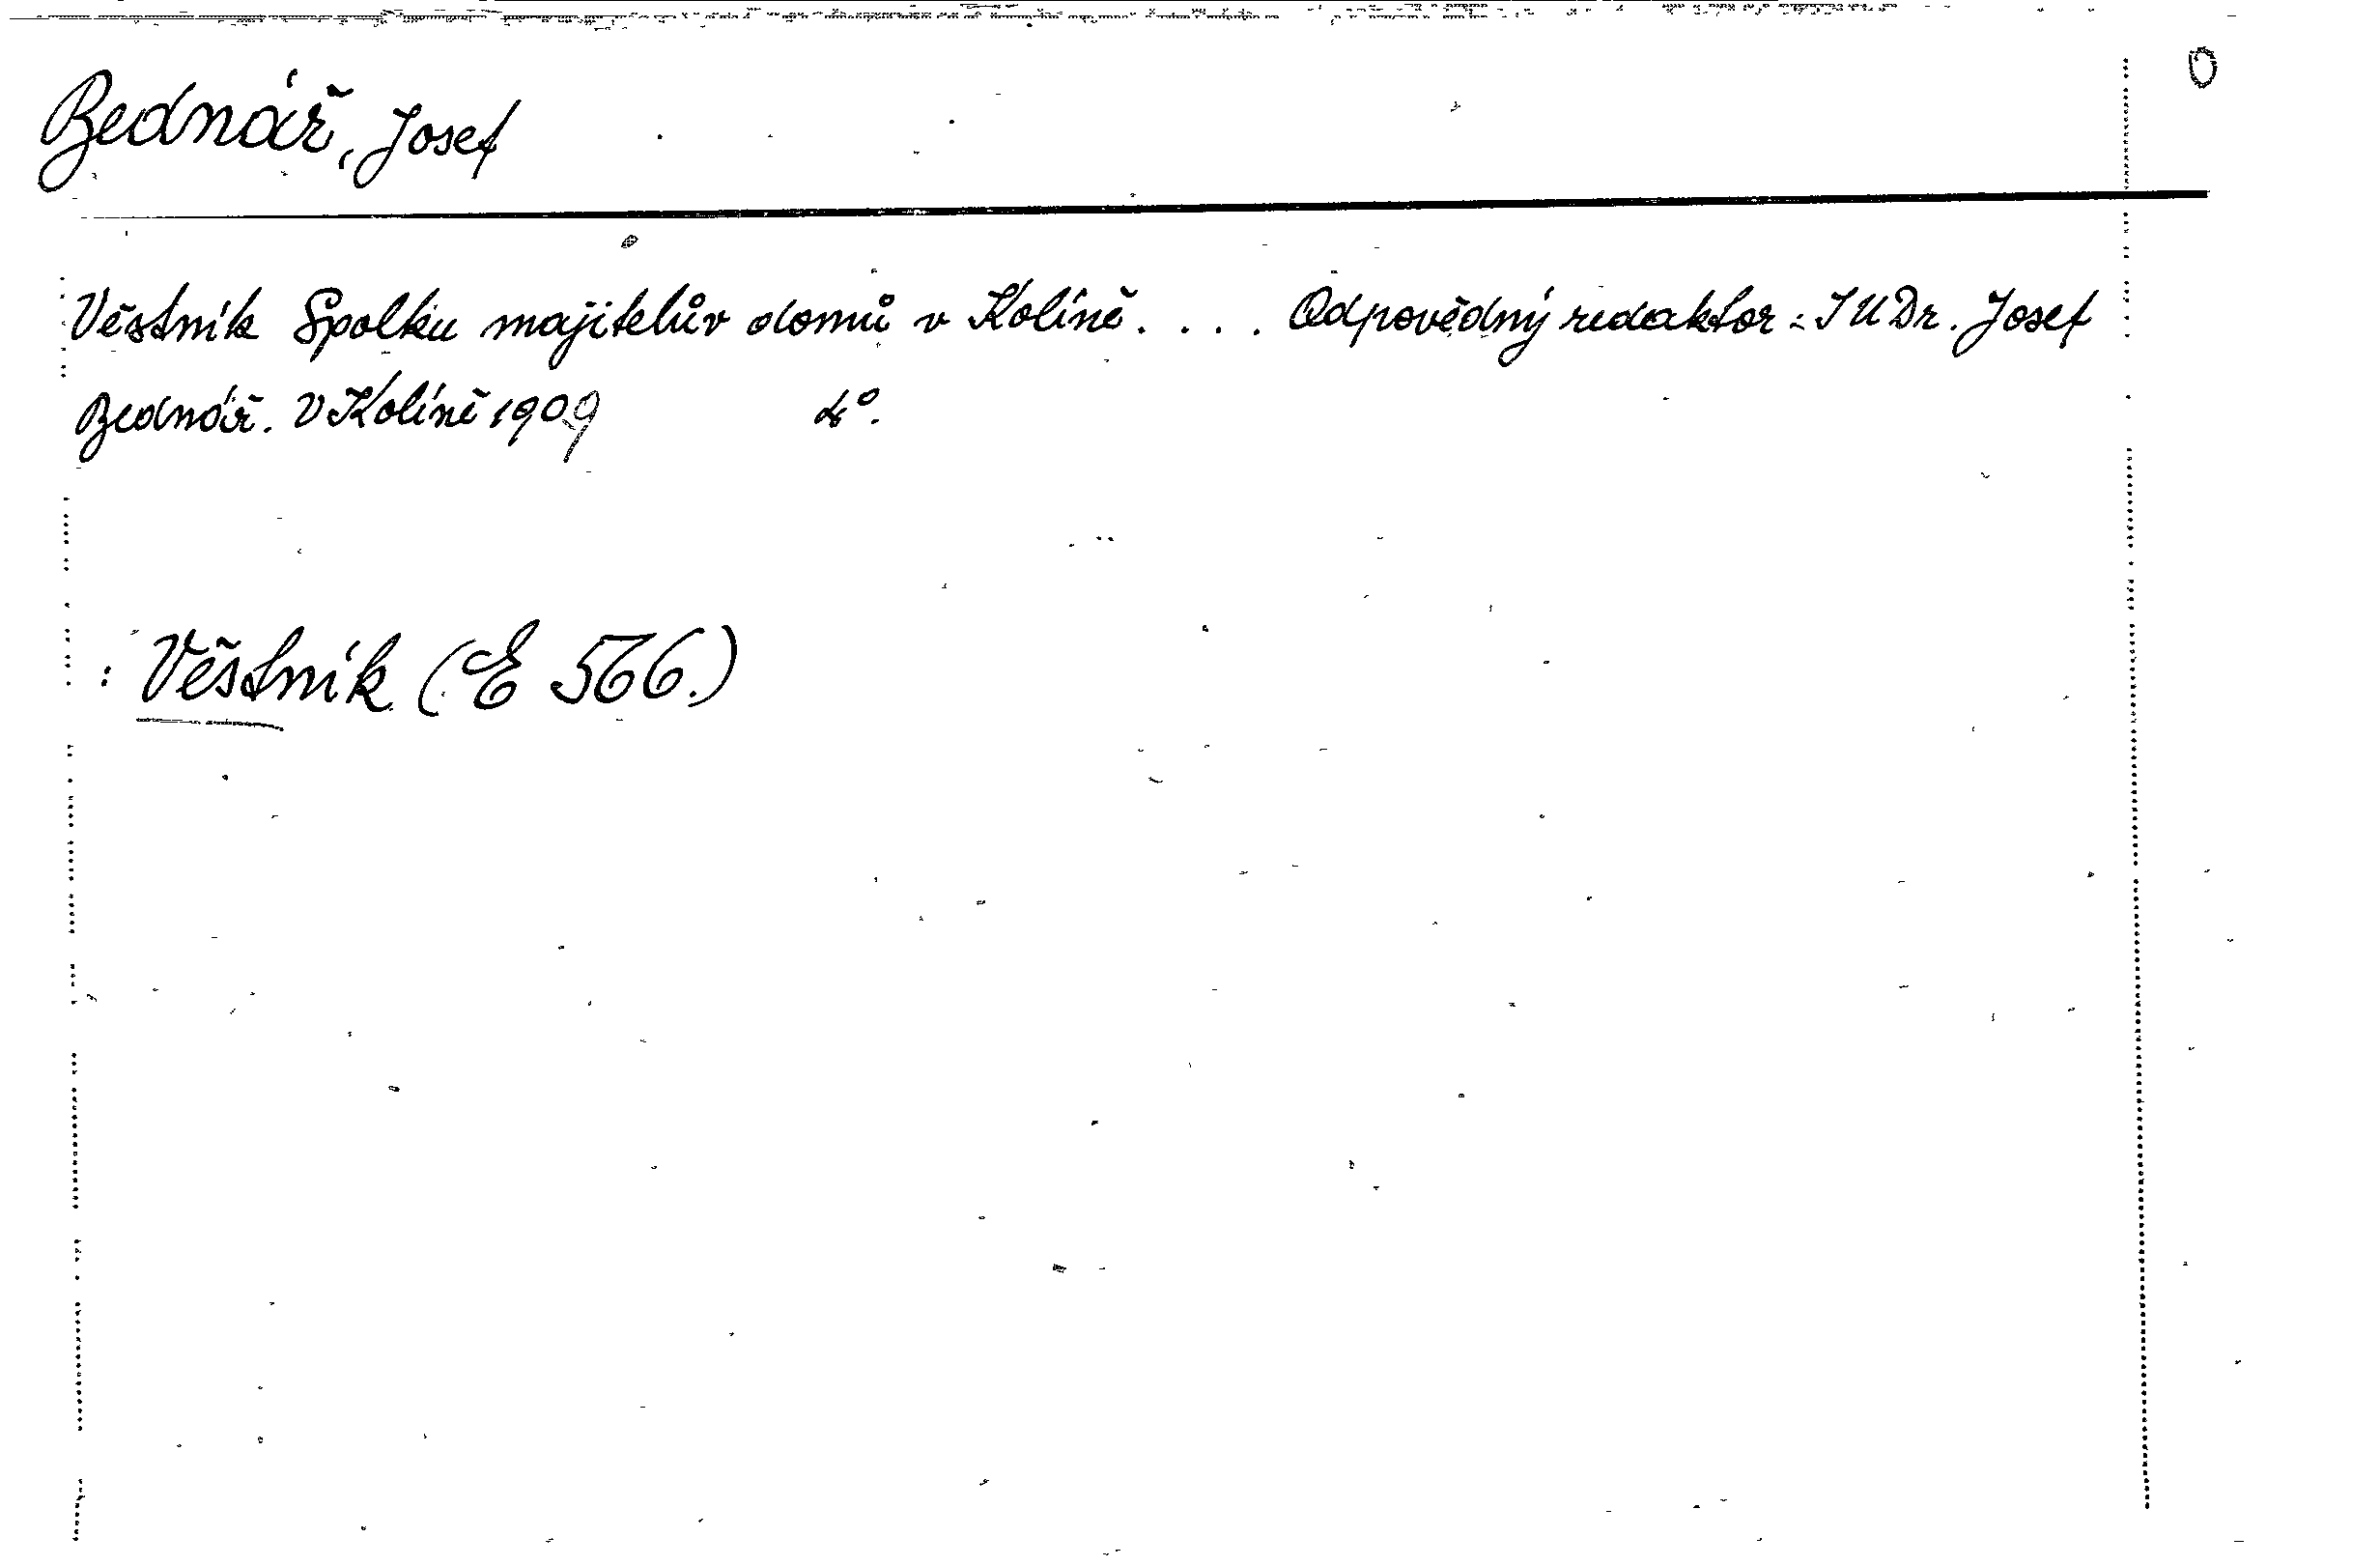 Bednář, Josef
Věstník Spolku majitelův domů v Kolíně. . . . Odpovědný redaktor: JUDr. Josef
Bednář. V Kolíně 1909 4°.
: Věstník (E 566.)